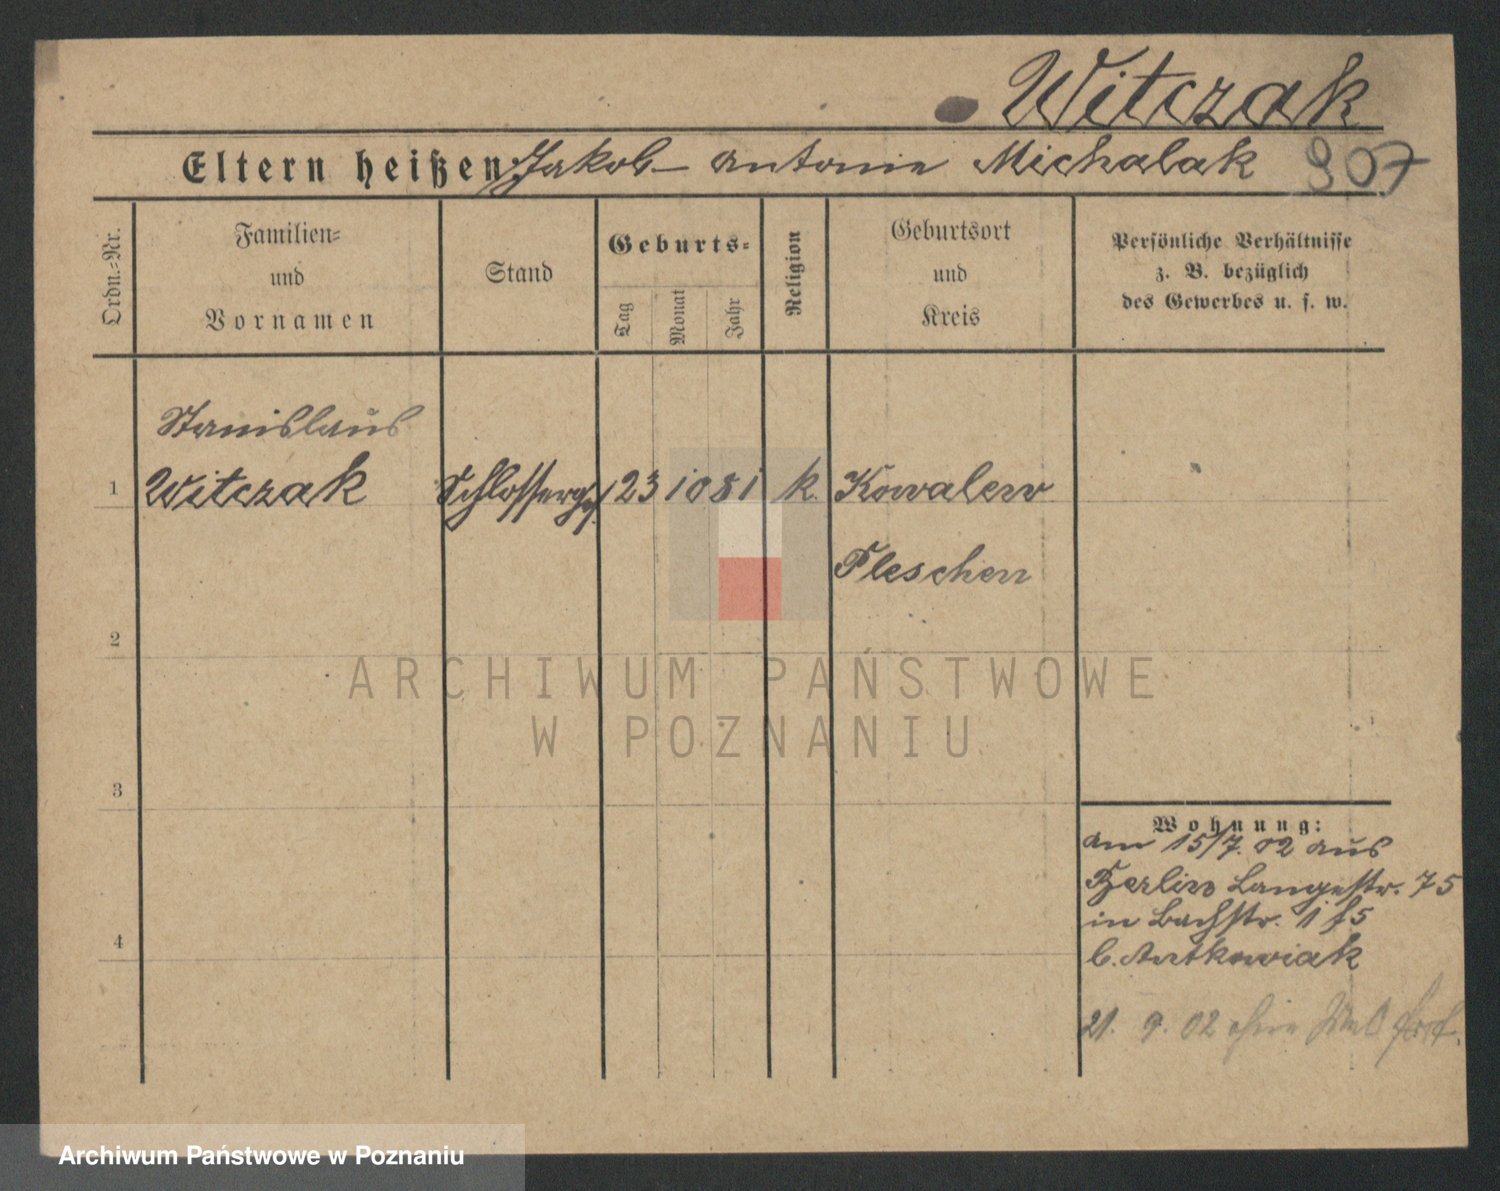 Witczak
Eltern heißen: Jakob – Antonie Michalak 907
Ordn.=Nr.
Familien=
und
Vornamen
Stand
Geburts=
Tag
Monat
Jahr
Religion
Geburtsort
und
Kreis
Persönliche Verhältnisse
z. B. bezüglich
des Gewerbes u. s. w.
Stanislaus
1 Witczak Schlosserges. 23 10 81 k. Kowalew
Pleschen
2
3
4
Wohnung:
am 15/7. 02 aus
Berlin Langestr. 75
in Bachstr. 15
b. Antkowiak
21. 9. 02 ohne
ARCHIWUM PAŃSTWOWE
W POZNANIU
Archiwum Państwowe w Poznaniu